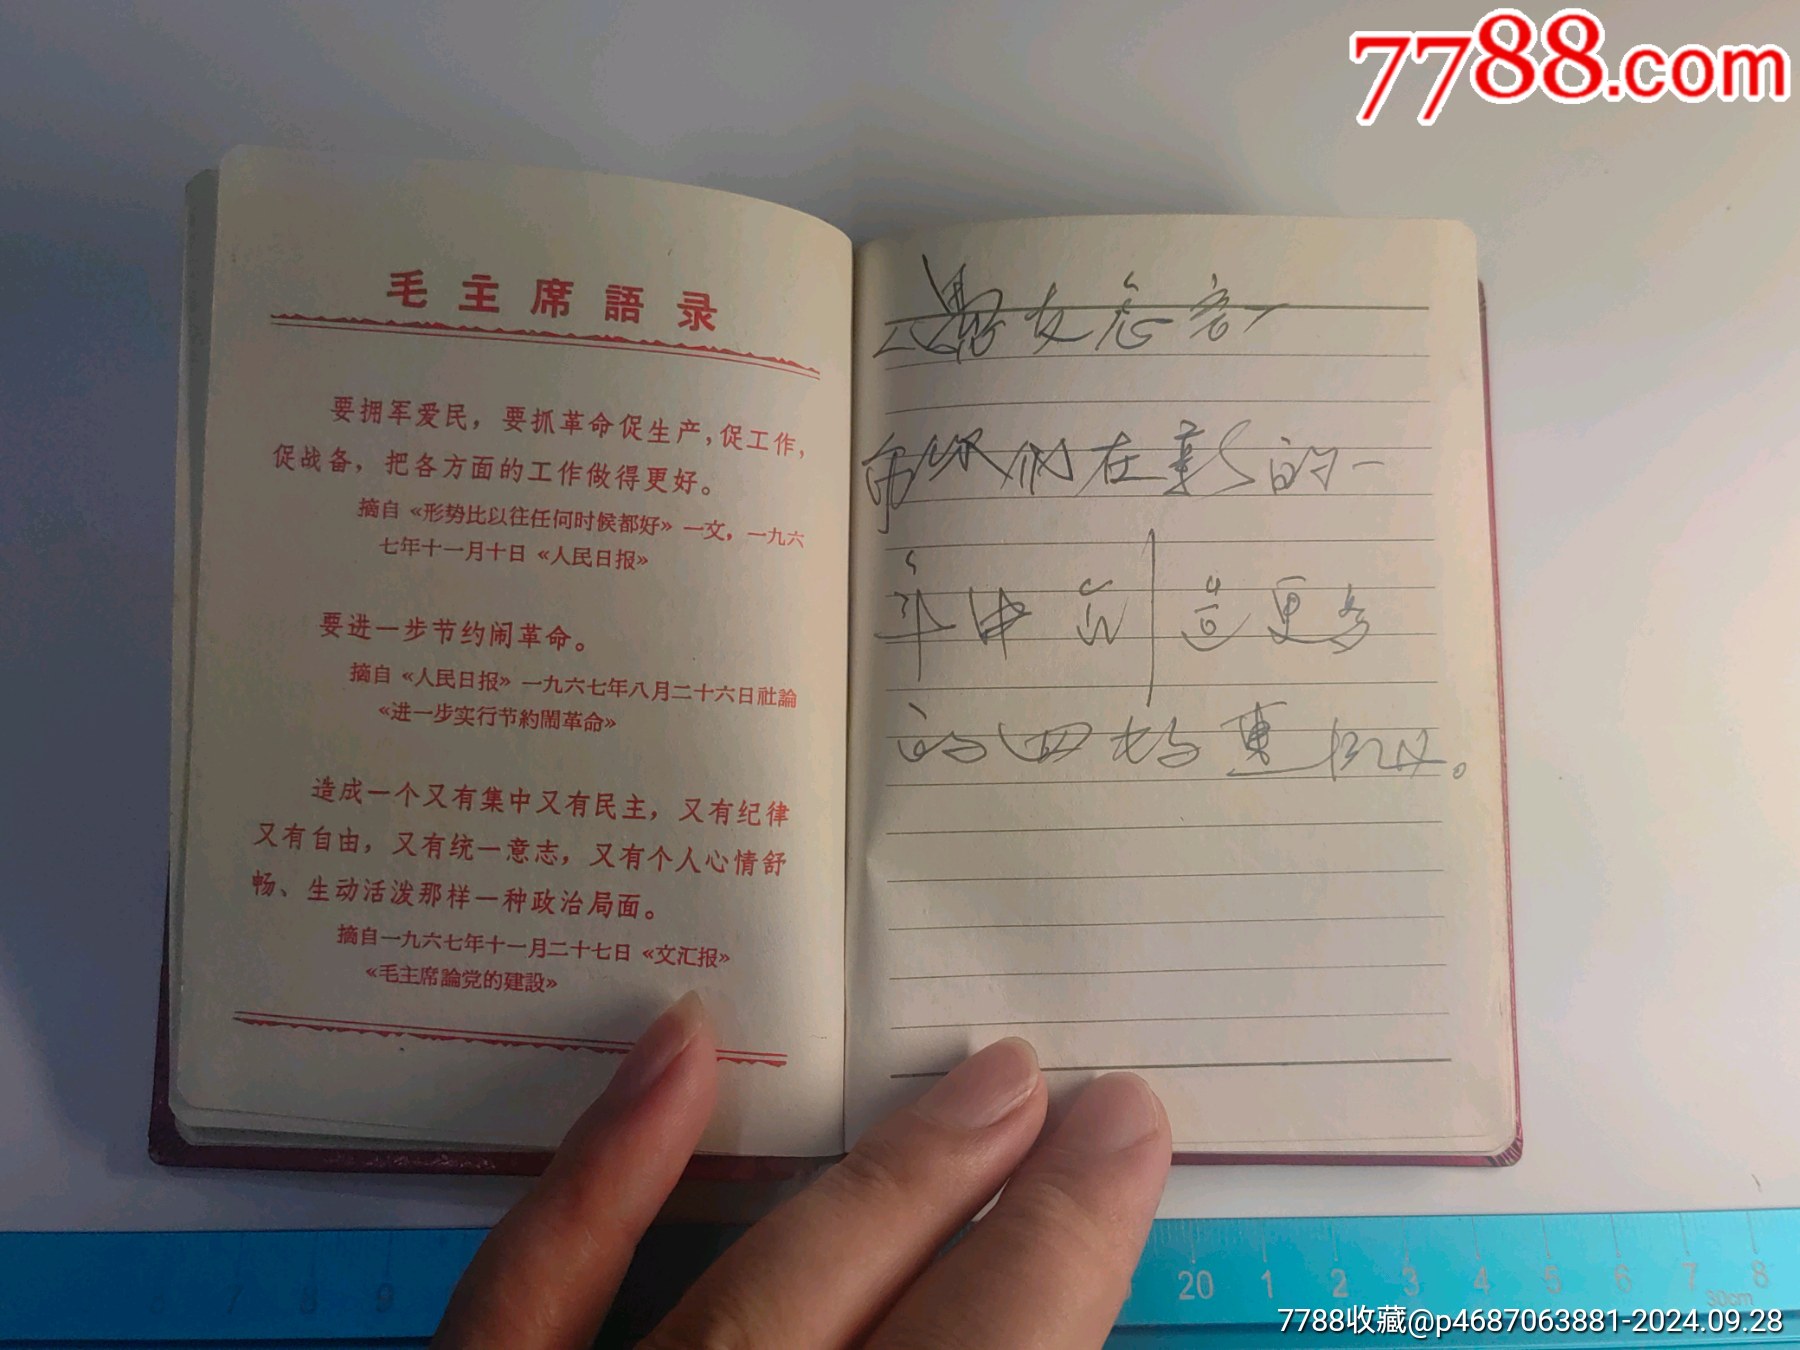 7788.com
毛主席語录
要拥军爱民，要抓革命促生产，促工作，
促战备，把各方面的工作做得更好。
摘自《形势比以往任何时候都好》一文，一九六
七年十一月十日《人民日报》
要进一步节约闹革命。
摘自《人民日报》一九六七年八月二十六日社論
《进一步实行节約鬧革命》
造成一个又有集中又有民主，又有纪律
又有自由，又有统一意志，又有个人心情舒
畅、生动活泼那样一种政治局面。
摘自一九六七年十一月二十七日《文汇报》
《毛主席論党的建設》
你们在新的一
年中创造更多
的四好連
20 1 2 3 4 5 6 7 8
30cm
7 8 9
7788收藏@p4687063881-2024.09.28